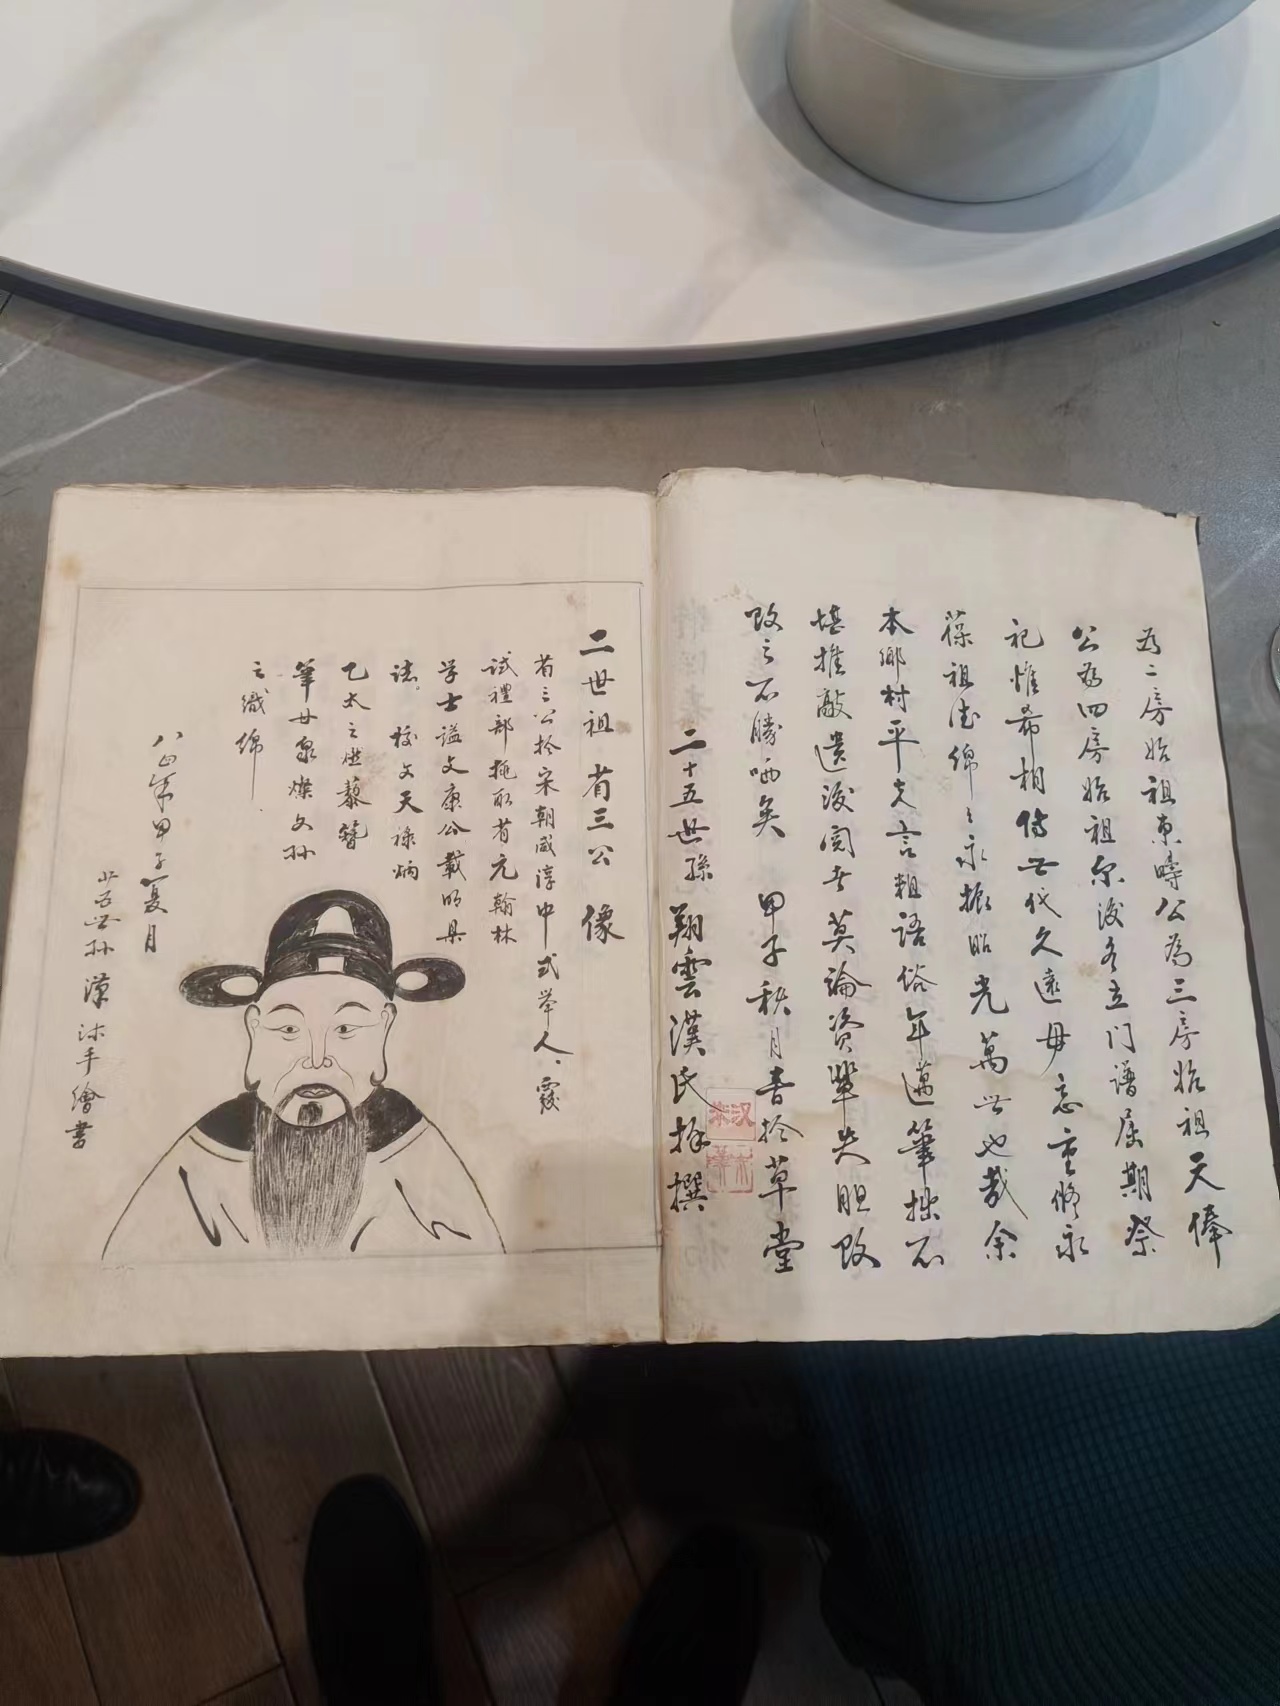 為二房始祖東時公為三房始祖天俸
公為四房始祖尔後各立门譜届期祭
祀惟希相傳世代久遠毋忘重修永
葆祖德綿〻永振昭光萬世也哉余
本鄉村平夫言粗語俗年邁筆拙不
堪推敲遺後閲者莫論资輩失胆敢
敢之不勝哂矣 甲子秋月書於草堂
二十五世孫 翔雲漢氏拜撰
二世祖 省三公 像
省三公於宋朝咸淳中式举人、
試禮部挑取省元翰林
学士谥文康公載明具
誌 校文天禄炳
乙太之然藜簪
筆廿泉燦文孙
之織綿
八四年甲子夏月
廿五世孙 漢 沐手繪書